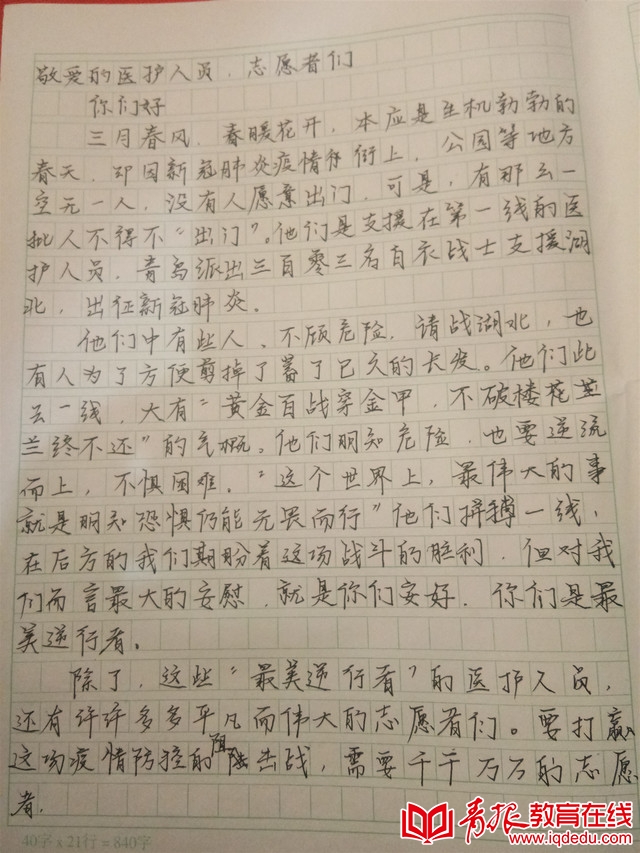 敬爱的医护人员、志愿者们
你们好
三月春风，春暖花开，本应是生机勃勃的
春天，却因新冠肺炎疫情存街上，公园等地方
空无一人，没有人愿意出门，可是，有那么一
批人不得不“出门”。他们是支援在第一线的医
护人员，青岛派出三百零三名白衣战士支援湖
北，出征新冠肺炎。
他们中有些人、不顾危险，请战湖北，也
有人为了方便剪掉了蓄了已久的长发。他们此
去一线，大有“黄金百战穿金甲，不破楼花兰
兰终不还”的气概。他们明知危险，也要逆流
而上，不惧困难，“这个世界上，最伟大的事
就是明知恐惧仍能无畏而行”他们拼搏一线，
在后方的我们期盼着这场战斗的胜利，但对我
们而言最大的安慰，就是你们安好，你们是最
美逆行者。
除了，这些“最美逆行者”的医护人员，
还有许许多多平凡而伟大的志愿者们。要打赢
这场疫情防控的阻击战，需要千千万万的志愿
者，
40字x21行=840字
青报教育在线
www.iqdedu.com